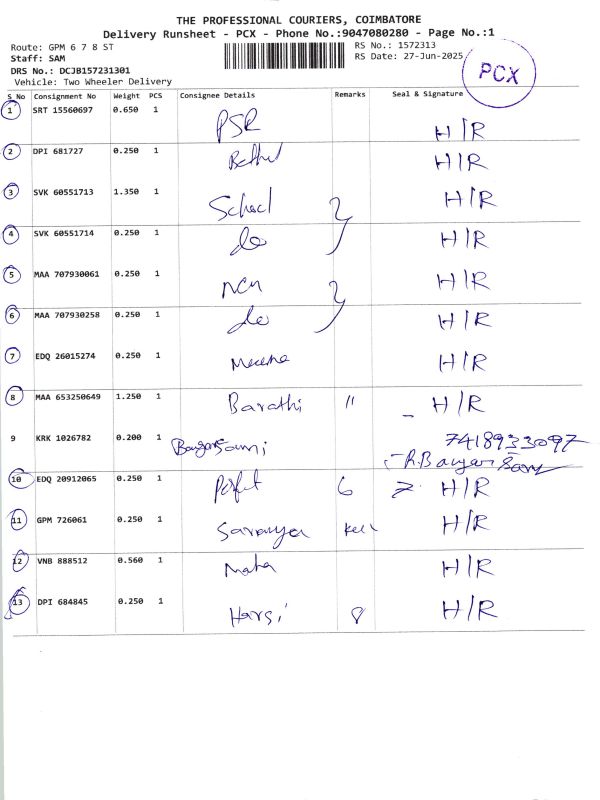 THE PROFESSIONAL COURIERS, COIMBATORE
Delivery Runsheet - PCX - Phone No.:9047080280 - Page No.:1
Route: GPM 6 7 8 ST
Staff: SAM
DRS No.: DCJB157231301
Vehicle: Two Wheeler Delivery
RS No.: 1572313
RS Date: 27-Jun-2025
PCX
S No Consignment No Weight PCS Consignee Details Remarks Seal & Signature
1 SRT 15560697 0.650 1 PSR H/R
2 DPI 681727 0.250 1 Bethel H/R
3 SVK 60551713 1.350 1 School H/R
4 SVK 60551714 0.250 1 do H/R
5 MAA 707930061 0.250 1 H/R
6 MAA 707930258 0.250 1 do H/R
7 EDQ 26015274 0.250 1 Meena H/R
8 MAA 653250649 1.250 1 Barathi " - H/R
9 KRK 1026782 0.200 1 7418933097
R. Bangarsamy
10 EDQ 20912065 0.250 1 6 7 H/R
11 GPM 726061 0.250 1 Saranya H/R
12 VNB 888512 0.560 1 Maha H/R
13 DPI 684845 0.250 1 Harsi 8 H/R